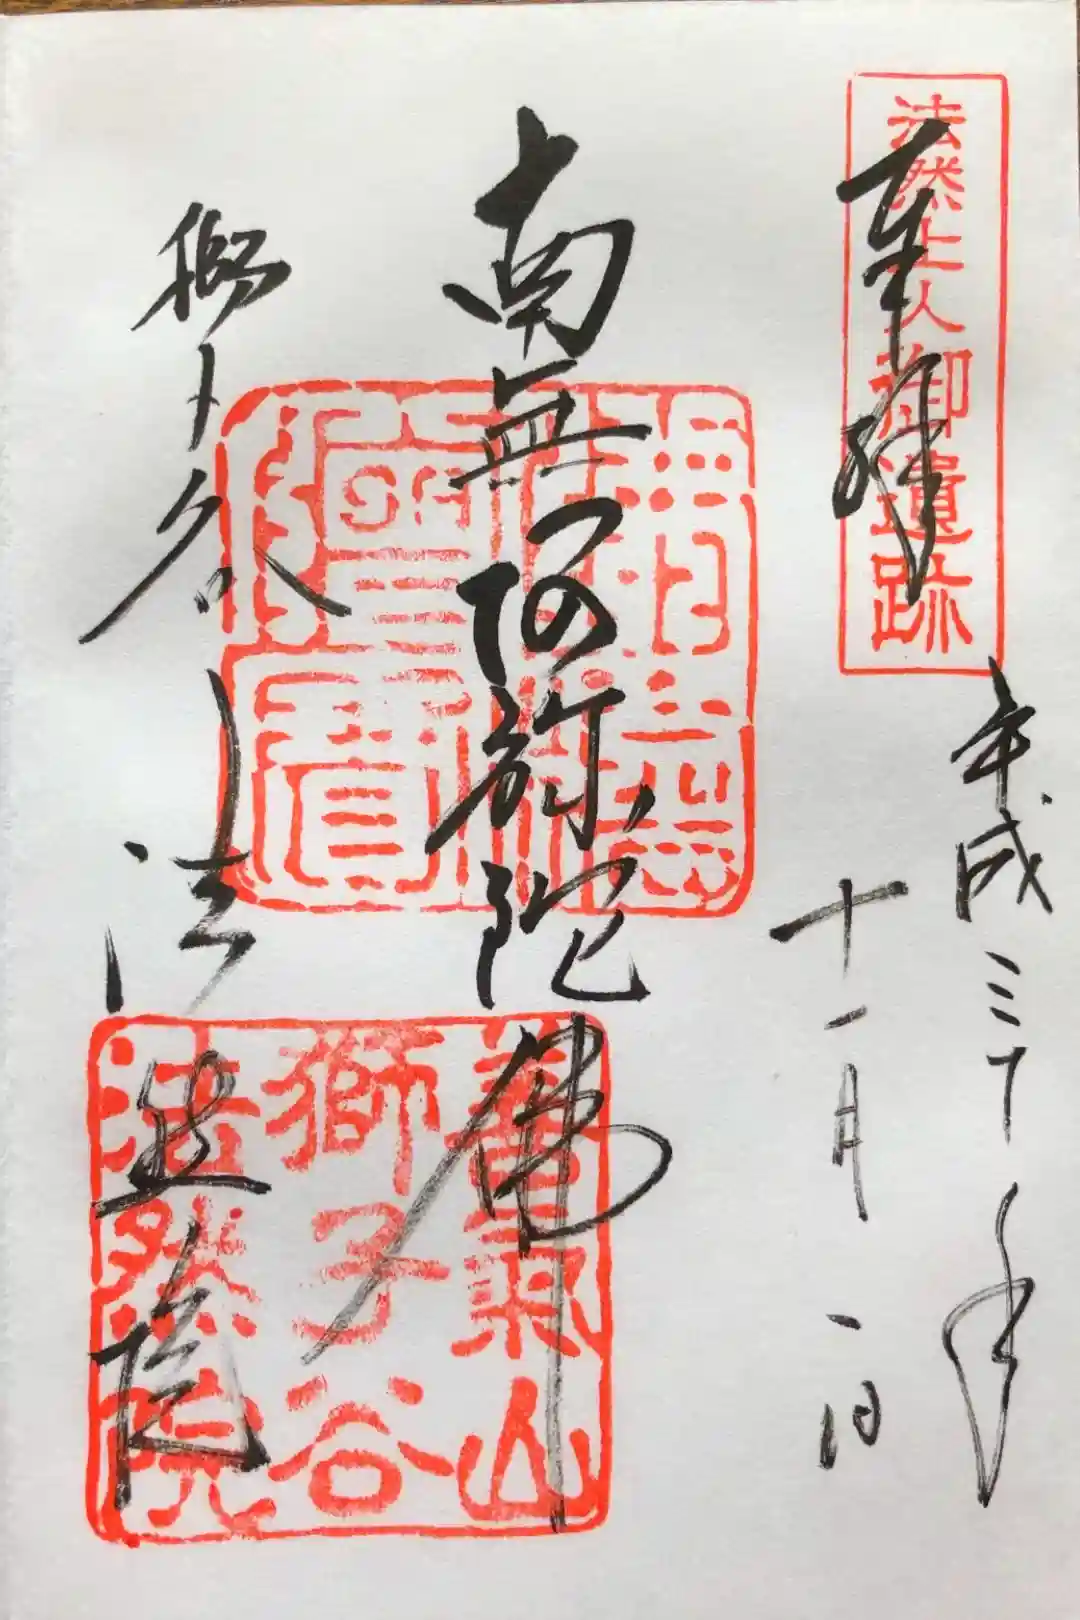 法然上人御遺跡
奉拝
平成三十年
十一月一日
南無阿弥陀佛
佛法僧寶
獅子谷
法然院
善氣山
獅子谷
法然院